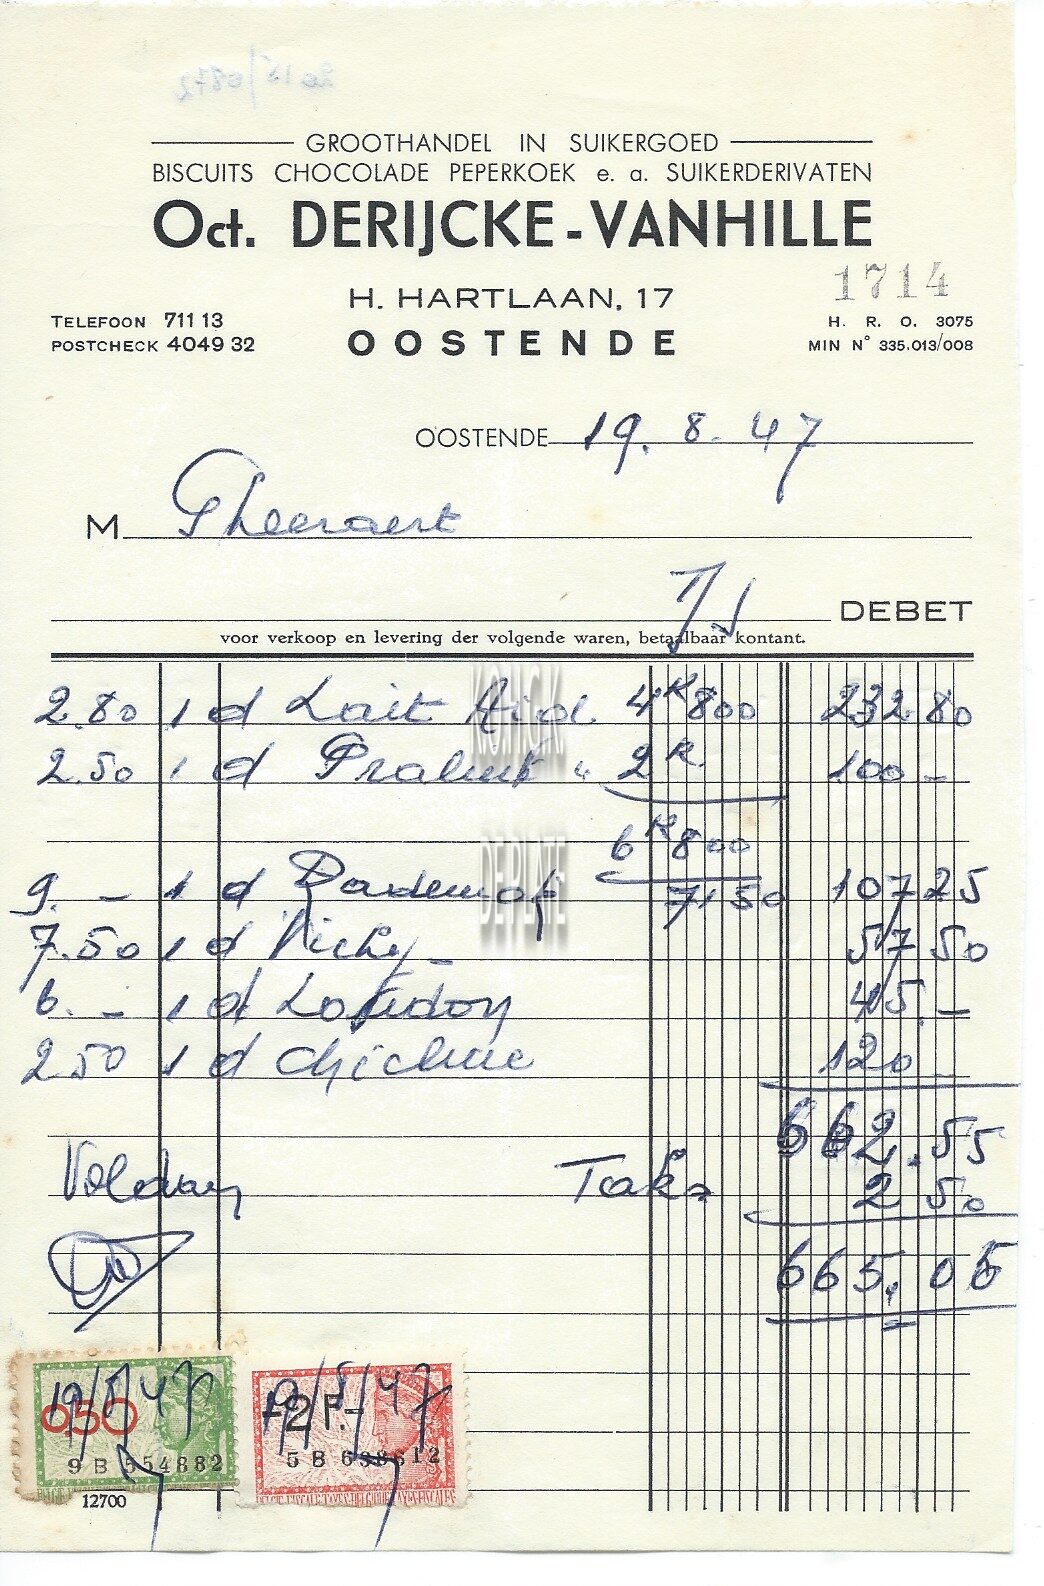 GROOTHANDEL IN SUIKERGOED
BISCUITS CHOCOLADE PEPERKOEK e. a. SUIKERDERIVATEN
Oct. DERIJCKE-VANHILLE
1714
H. HARTLAAN, 17
OOSTENDE
TELEFOON 711 13
POSTCHECK 4049 32
H. R. O. 3075
MIN N° 335.013/008
OOSTENDE 19.8.47
M Pheeraert
DEBET
voor verkoop en levering der volgende waren, betaalbaar kontant.
2.80 1 d Lait 4K800 232.80
2.50 1 d 2K 100 -
6K800
9. - 1 d 7150 107 25
7.50 1 d Vichy - 57 50
6. - 1 d London 45. -
2 50 1 d 120 -
662.55
Voldaan Taks 2 50
665.05
KON.G.K. DE PLATE
19/8/47
0.50
9 B 554882
19/8/47
2 F.-
5 B 638612
12700